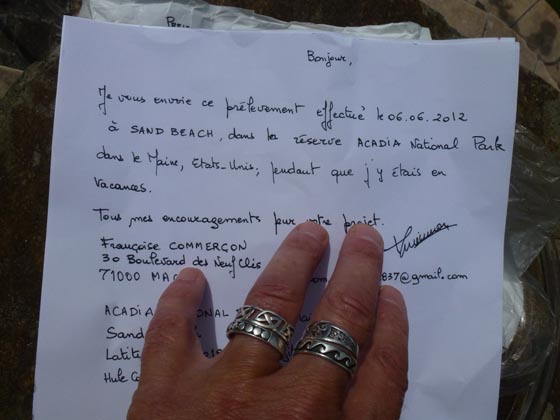 Bonjour,
Je vous envoie ce prélèvement effectué le 06.06.2012
à SAND BEACH, dans la réserve ACADIA National Park
dans le Maine, Etats-Unis, pendant que j'y étais en
vacances.
Tous mes encouragements pour votre projet.
Françoise COMMERÇON
30 Boulevard des Neuf Clés
71000 837@gmail.com
ACADIA
Sand
Hulls